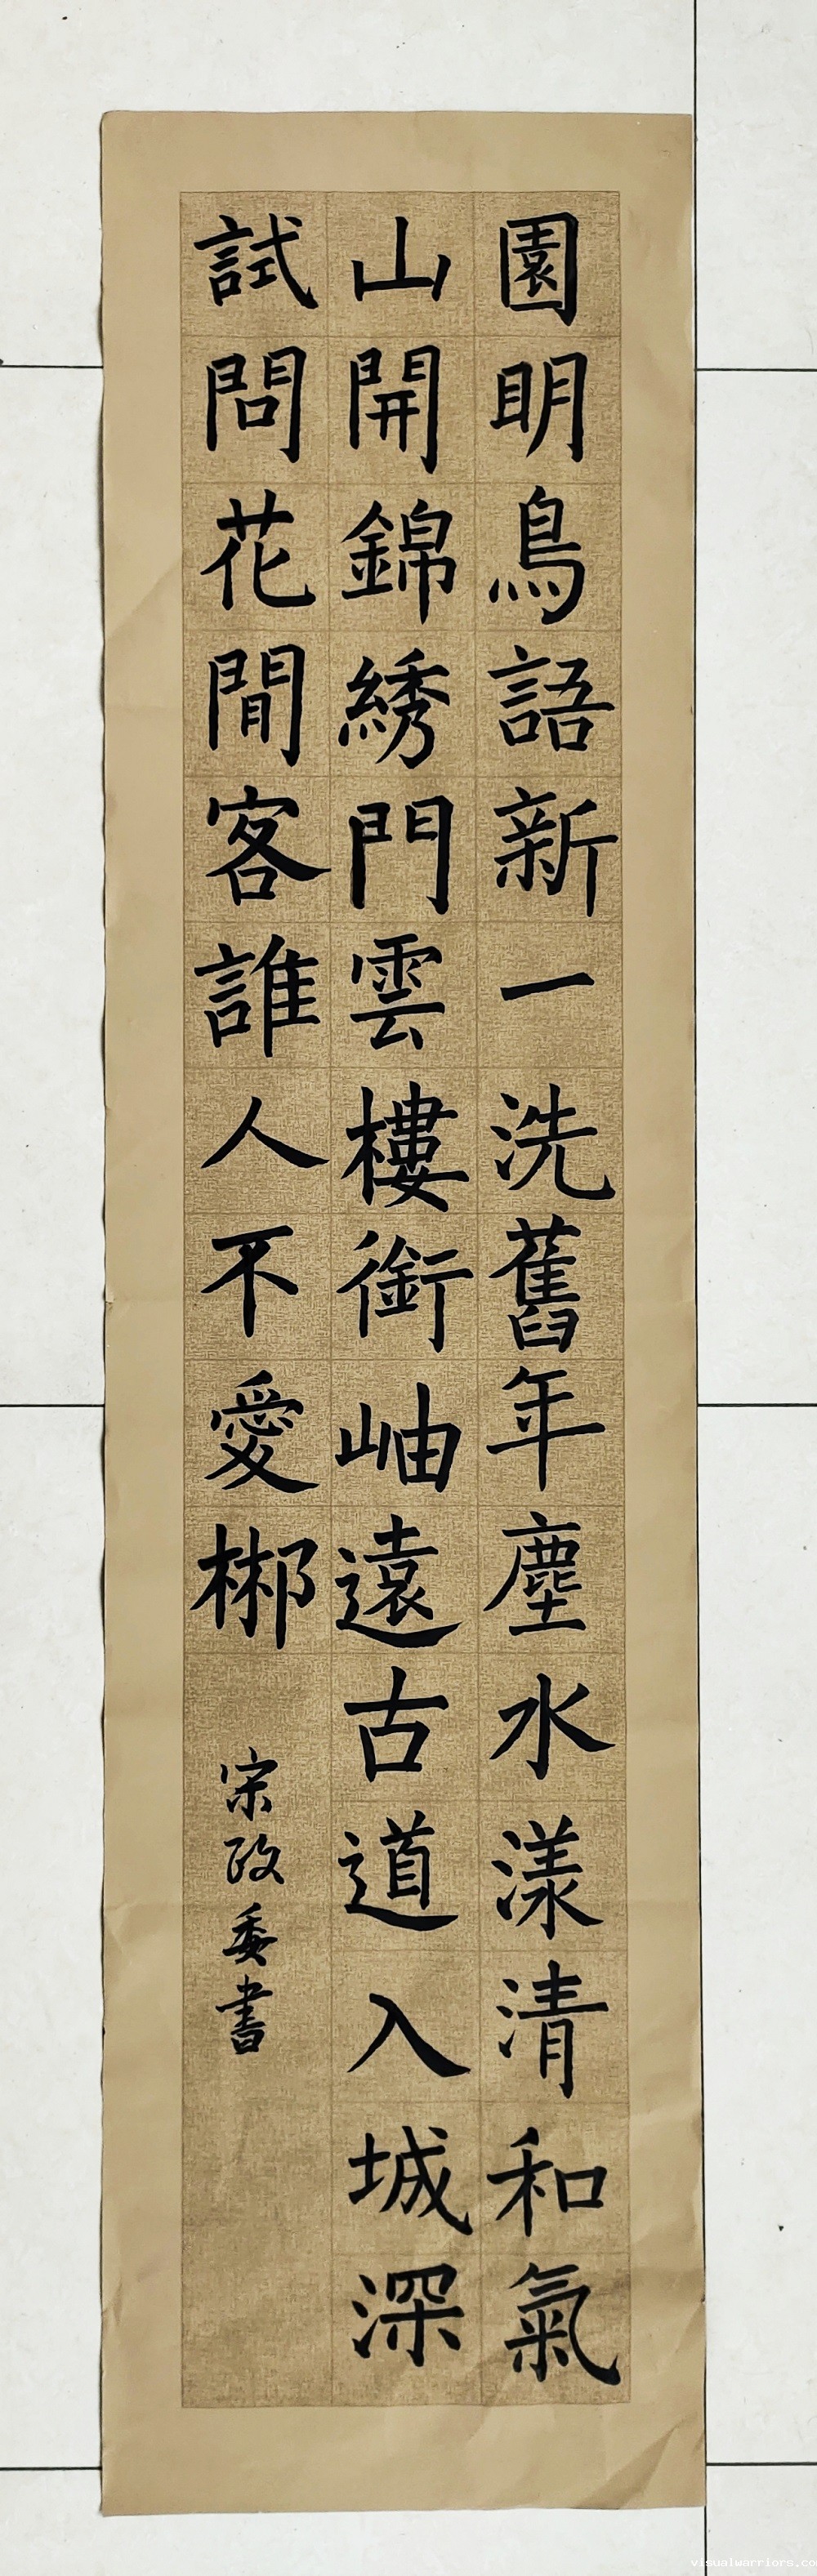 園明鳥語新一洗舊年塵水漾清和氣
山開錦綉門雲樓銜岫遠古道入城深
試問花間客誰人不愛郴
宗政委書
visualwarriors.co